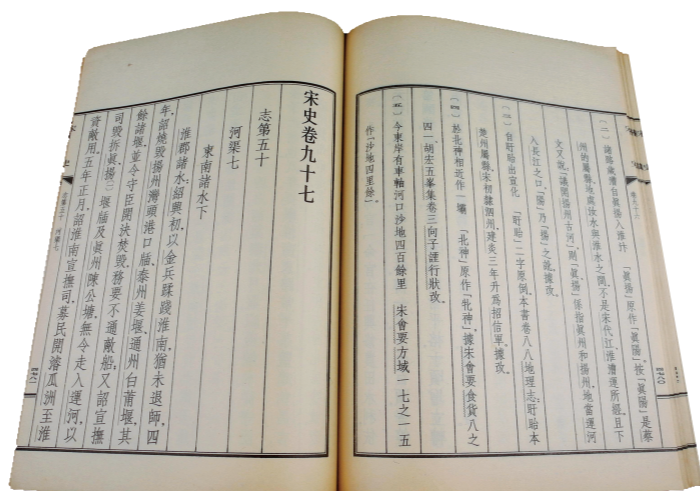 〔二〕諸路歲漕自眞揚入淮汴 「眞揚」原作「眞陽」。按「眞陽」是蔡
州的屬縣,地處汝水與淮水之間,不是宋代江、淮漕運所經。且下
文又說:「議開揚州古河」,則「眞揚」係指眞州和揚州,地當運河
入長江之口,「陽」乃「揚」之訛,據改。
〔三〕自盱眙出宣化 「盱眙」二字原倒。本書卷八八地理志:盱眙本
楚州屬縣,宋初隸泗州,建炎三年升爲招信軍。據改。
〔四〕於北神相近作一壩 「北神」原作「牝神」,據宋會要食貨八之
四一、胡宏五峯集卷三向子諲行狀改。
〔五〕今東岸有車軸河口沙地四百餘里 宋會要方域一七之一五
作「沙地四里餘」。
宋史卷九十七
志第五十
河渠七
東南諸水下
淮郡諸水:紹興初,以金兵蹂踐淮南,猶未退師,四
年,詔燒毀揚州灣頭港口牐、泰州姜堰、通州白莆堰,其
餘諸堰,並令守臣開決焚毀,務要不通敵船;又詔宣撫
司毀拆眞、揚〔一〕堰牐及眞州陳公塘,無令走入運河,以
資敵用。五年正月,詔淮南宣撫司,募民開濬瓜洲至淮
志第五十 河渠七